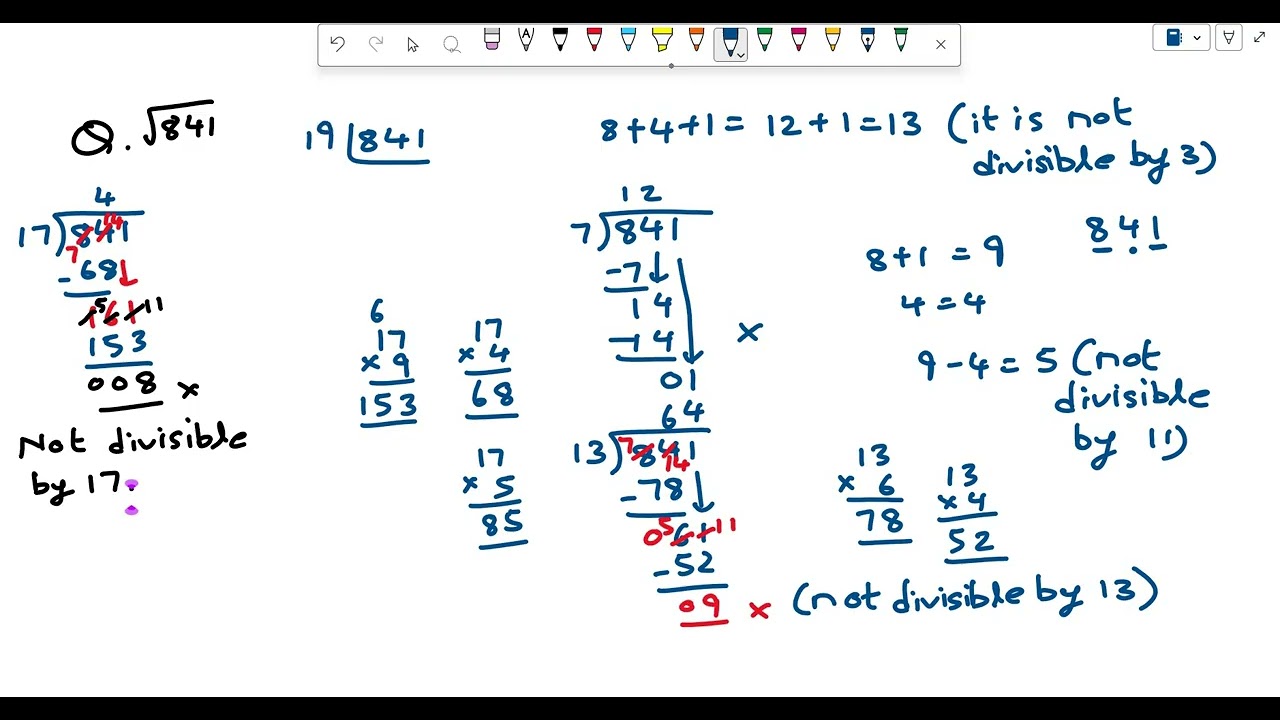 Q. √841
19 841
8+4+1 = 12+1=13 (it is not
divisible by 3)
4
17)841
7 14
-68
161
5 11
153
008 ×
Not divisible
by 17.
6
17
× 9
153
17
× 4
68
17
× 5
85
12
7)841
-7
14
-14
01
×
64
13)841
7 14
-78
061
5 11
-52
09 × (not divisible by 13)
8+1 = 9
4 = 4
841
9-4 = 5 (not
divisible
by 11)
13
× 6
78
13
×4
52